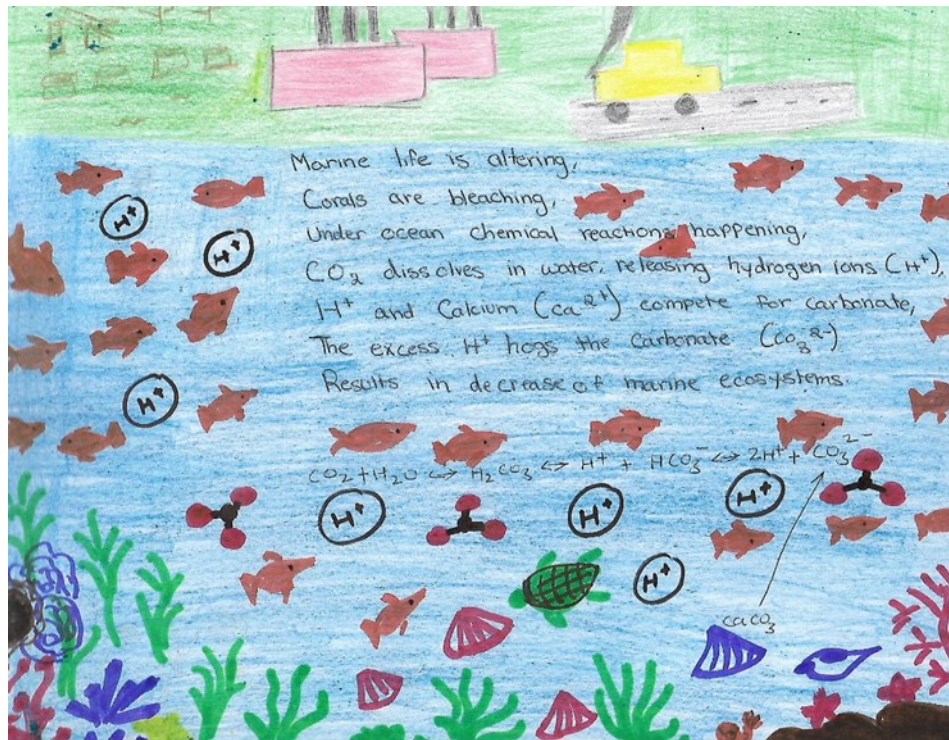 Marine life is altering,
Corals are bleaching,
Under ocean chemical reactions happening,
CO₂ dissolves in water, releasing hydrogen ions (H⁺),
H⁺ and Calcium (Ca²⁺) compete for carbonate,
The excess H⁺ hogs the carbonate (CO₃²⁻)
Results in decrease of marine ecosystems.
CO₂ + H₂O ↔ H₂CO₃ ↔ H⁺ + HCO₃⁻ ↔ 2H⁺ + CO₃²⁻
H⁺
H⁺
H⁺
H⁺
H⁺
H⁺
H⁺
CaCO₃